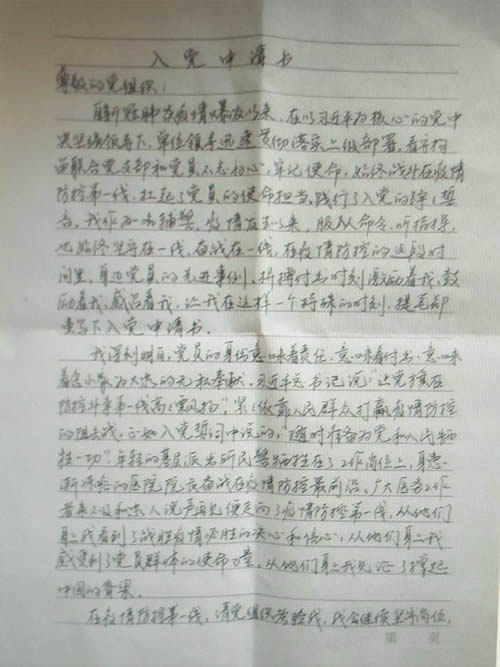 入党申请书
尊敬的党组织：
自新冠肺炎疫情爆发以来，在以习近平为核心的党中
央坚强领导下，单位领导迅速贯彻落实上级部署，
联合党支部和党员不忘初心，牢记使命，始终战斗在疫情
防控第一线，扛起了党员的使命担当，践行了入党的铮铮誓
言。我作为一名辅警，疫情发生以来，服从命令、听指挥，
也始终坚守在一线，奋战在一线，在疫情防控的这段时
间里，身边党员的先进事例，拼搏付出时刻激励着我，鼓
励着我，感召着我，让我在这样一个特殊的时刻，提笔郑
重写下入党申请书。
我深刻明白，党员的身份意味着责任，意味着付出，意味
着舍小家为大家的无私奉献。习近平总书记说："让党旗在
防控斗争第一线高高飘扬"，紧紧依靠人民群众打赢疫情防控
的阻击战，正如入党誓词中说的，"随时准备为党和人民牺
牲一切"。年轻的基层派出所民警牺牲在了工作岗位上，身患
渐冻症的医院院长奋战在疫情防控最前沿，广大医务工作
者来不及和家人说声再见便走向了疫情防控第一线，从他们
身上我看到了战胜疫情必胜的决心和信心，从他们身上我
感受到了党员群体的使命力量，从他们身上我见证了撑起
中国的脊梁。
在疫情防控第一线，请党组织考验我，我会继续坚守岗位，
第 页